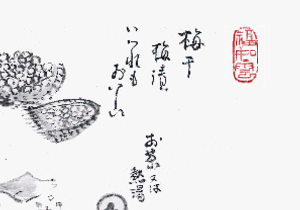 梅干
梅漬
いづれも
おいしい
お茶又は
熱湯